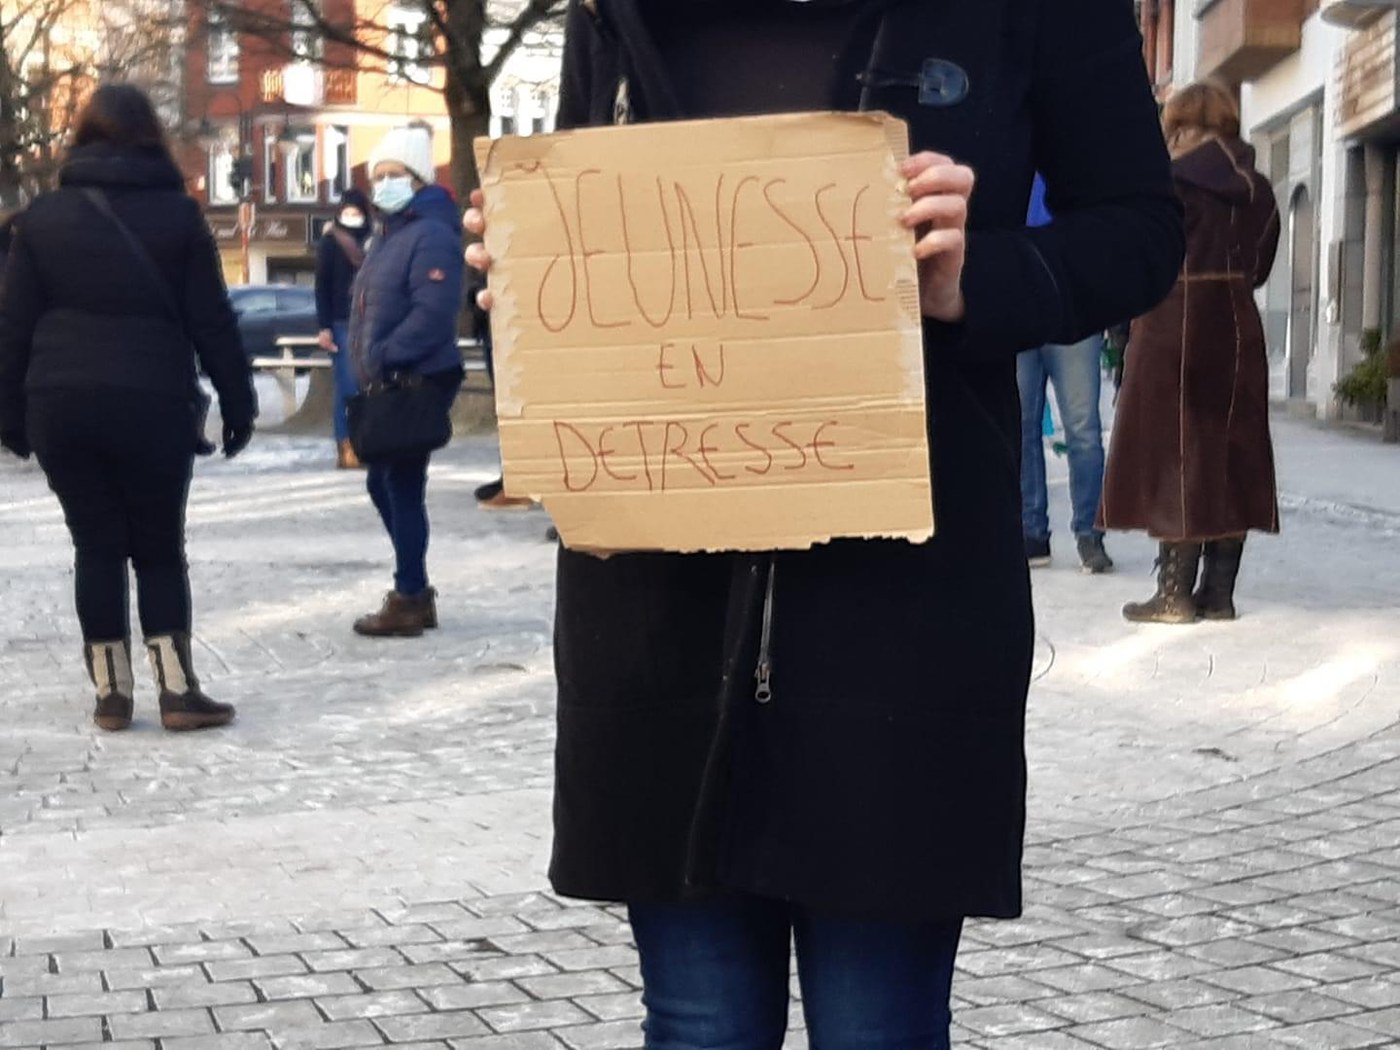 JEUNESSE
EN
DETRESSE